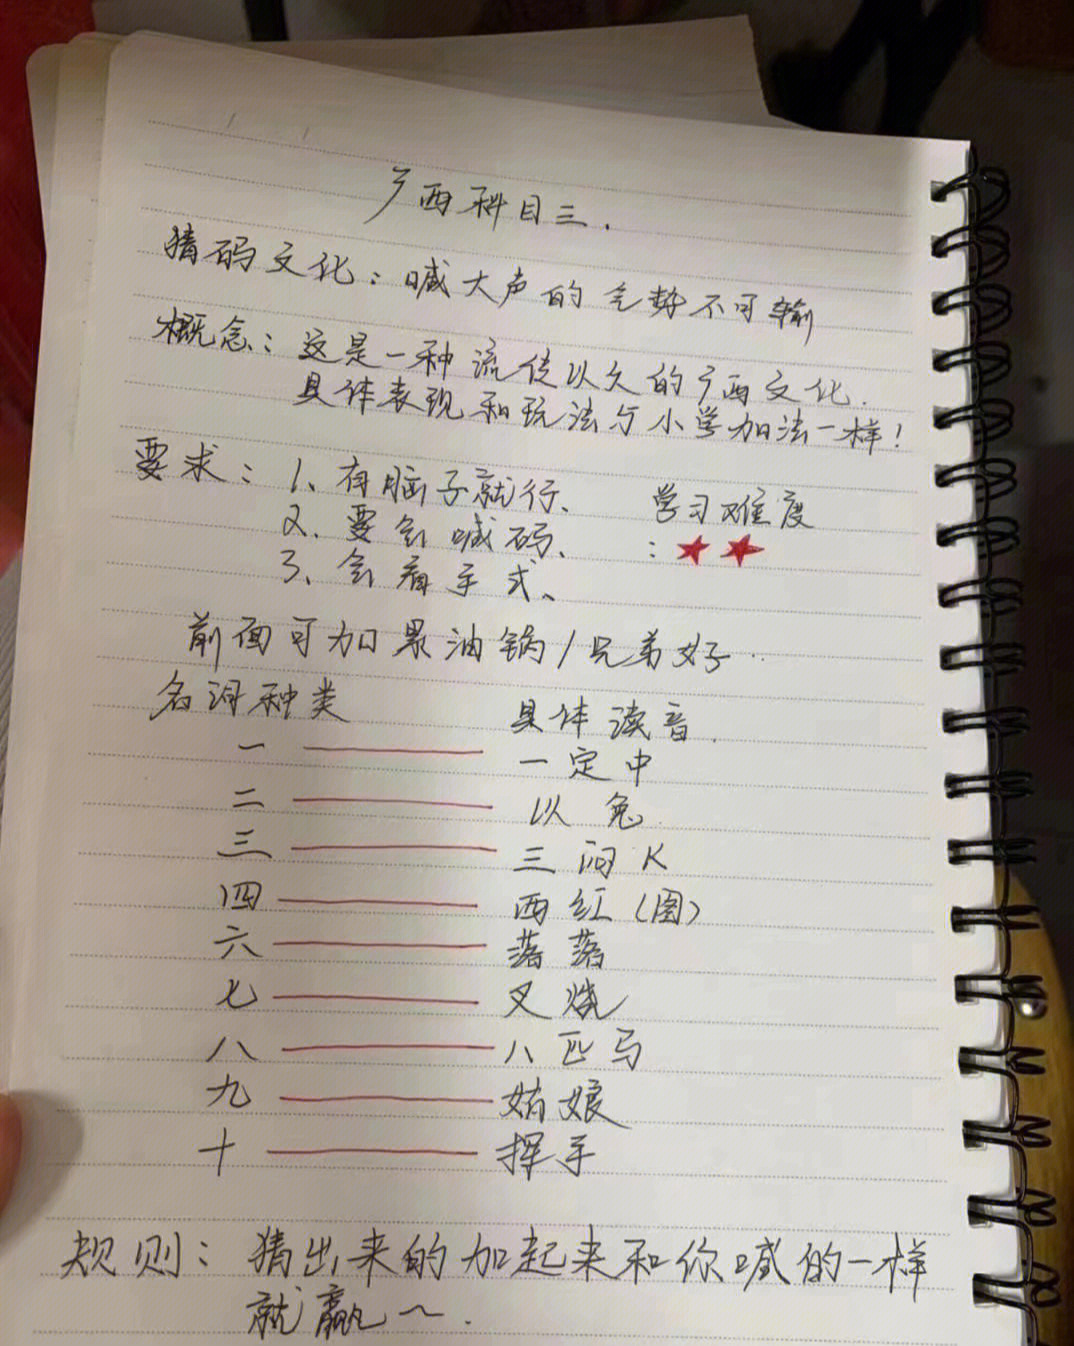 广西科目三.
猜码文化：喊大声的气势不可输
概念：这是一种流传以久的广西文化.
具体表现和玩法与小学加法一样！
要求：1、有脑子就行、
2、要会喊码、
3、会看手式、
学习难度
：★★
前面可加果油锅/兄弟好..
名词种类 具体读音.
一 —— 一定中
二 —— 以兔
三 —— 三闷K
四 —— 西红（图）
六 —— 落落
七 —— 叉烧
八 —— 八匹马
九 —— 姑娘
十 —— 挥手
规则：猜出来的加起来和你喊的一样
就赢～.